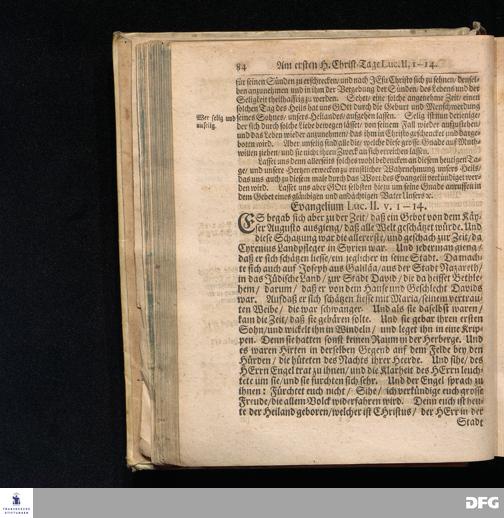 84 Am ersten H. Christ-Tage Luc. II, 1-14.
für seinen Sünden zu erschrecken/ und nach JEsu Christo sich zu sehnen/ densel-
ben anzunehmen und in ihm der Vergebung der Sünden/ des Lebens und der
Seligkeit theilhafftig zu werden. Sehet/ eine solche angenehme Zeit/ einen
solchen Tag des Heils hat uns GOtt durch die Geburt und Menschwerdung
Wer selig und
unselig.
seines Sohnes/ unsers Heilandes/ aufgehen lassen. Selig ist nun derjenige/
der sich durch solche Liebe bewegen lässet/ von seinem Fall wieder aufzustehen/
und das Leben wieder anzunehmen/ das ihm in Christo geschencket und darge-
boten wird. Aber unselig sind alle die/ welche diese grosse Gnade aus Muth-
willen ziehen/ und sie nicht ihren Zweck an sich erreichen lassen.
Lasset uns denn allerseits solches wohl bedencken an diesem heutigen Ta-
ge/ und unsere Hertzen erwecken zu ernstlicher Wahrnehmung unsers Heils/
das uns auch zu diesem male durch das Wort des Evangelii verkündiget wer-
den wird. Lasset uns aber GOtt selbsten hiezu um seine Gnade anruffen in
dem Gebet eines gläubigen und andächtigen Vater Unsers ⁊c.
Evangelium Luc. II. v. 1-14.
ES begab sich aber zu der Zeit/ daß ein Gebot von dem Käy-
ser Augusto ausgieng/ daß alle Welt geschätzet würde. Und
diese Schatzung war die allererste/ und geschach zur Zeit/ da
Cyrenius Landpfleger in Syrien war. Und jederman gieng/
daß er sich schätzen liesse/ ein jeglicher in seine Stadt. Da mach-
te sich auch auf Joseph aus Galiläa/ aus der Stadt Nazareth/
in das Jüdische Land/ zur Stadt David/ die da heisset Bethle-
hem/ darum/ daß er von dem Hause und Geschlecht Davids
war. Auf daß er sich schätzen liesse mit Maria/ seinem vertrau-
ten Weibe/ die war schwanger. Und als sie daselbst waren/
kam die Zeit/ daß sie gebären solte. Und sie gebar ihren ersten
Sohn/ und wickelt ihn in Windeln/ und leget ihn in eine Krip-
pen. Denn sie hatten sonst keinen Raum in der Herberge. Und
es waren Hirten in derselben Gegend auf dem Felde bey den
Hürden/ die hüteten des Nachts ihrer Heerde. Und sihe/ des
HErrn Engel trat zu ihnen/ und die Klarheit des HErrn leuch-
tete um sie/ und sie furchten sich sehr. Und der Engel sprach zu
ihnen: Fürchtet euch nicht/ Sihe/ ich verkündige euch grosse
Freude/ die allem Volck widerfahren wird. Denn euch ist heu-
te der Heiland geboren/ welcher ist CHristus/ der HErr in der
Stadt
FRANCKESCHE
STIFTUNGEN
DFG